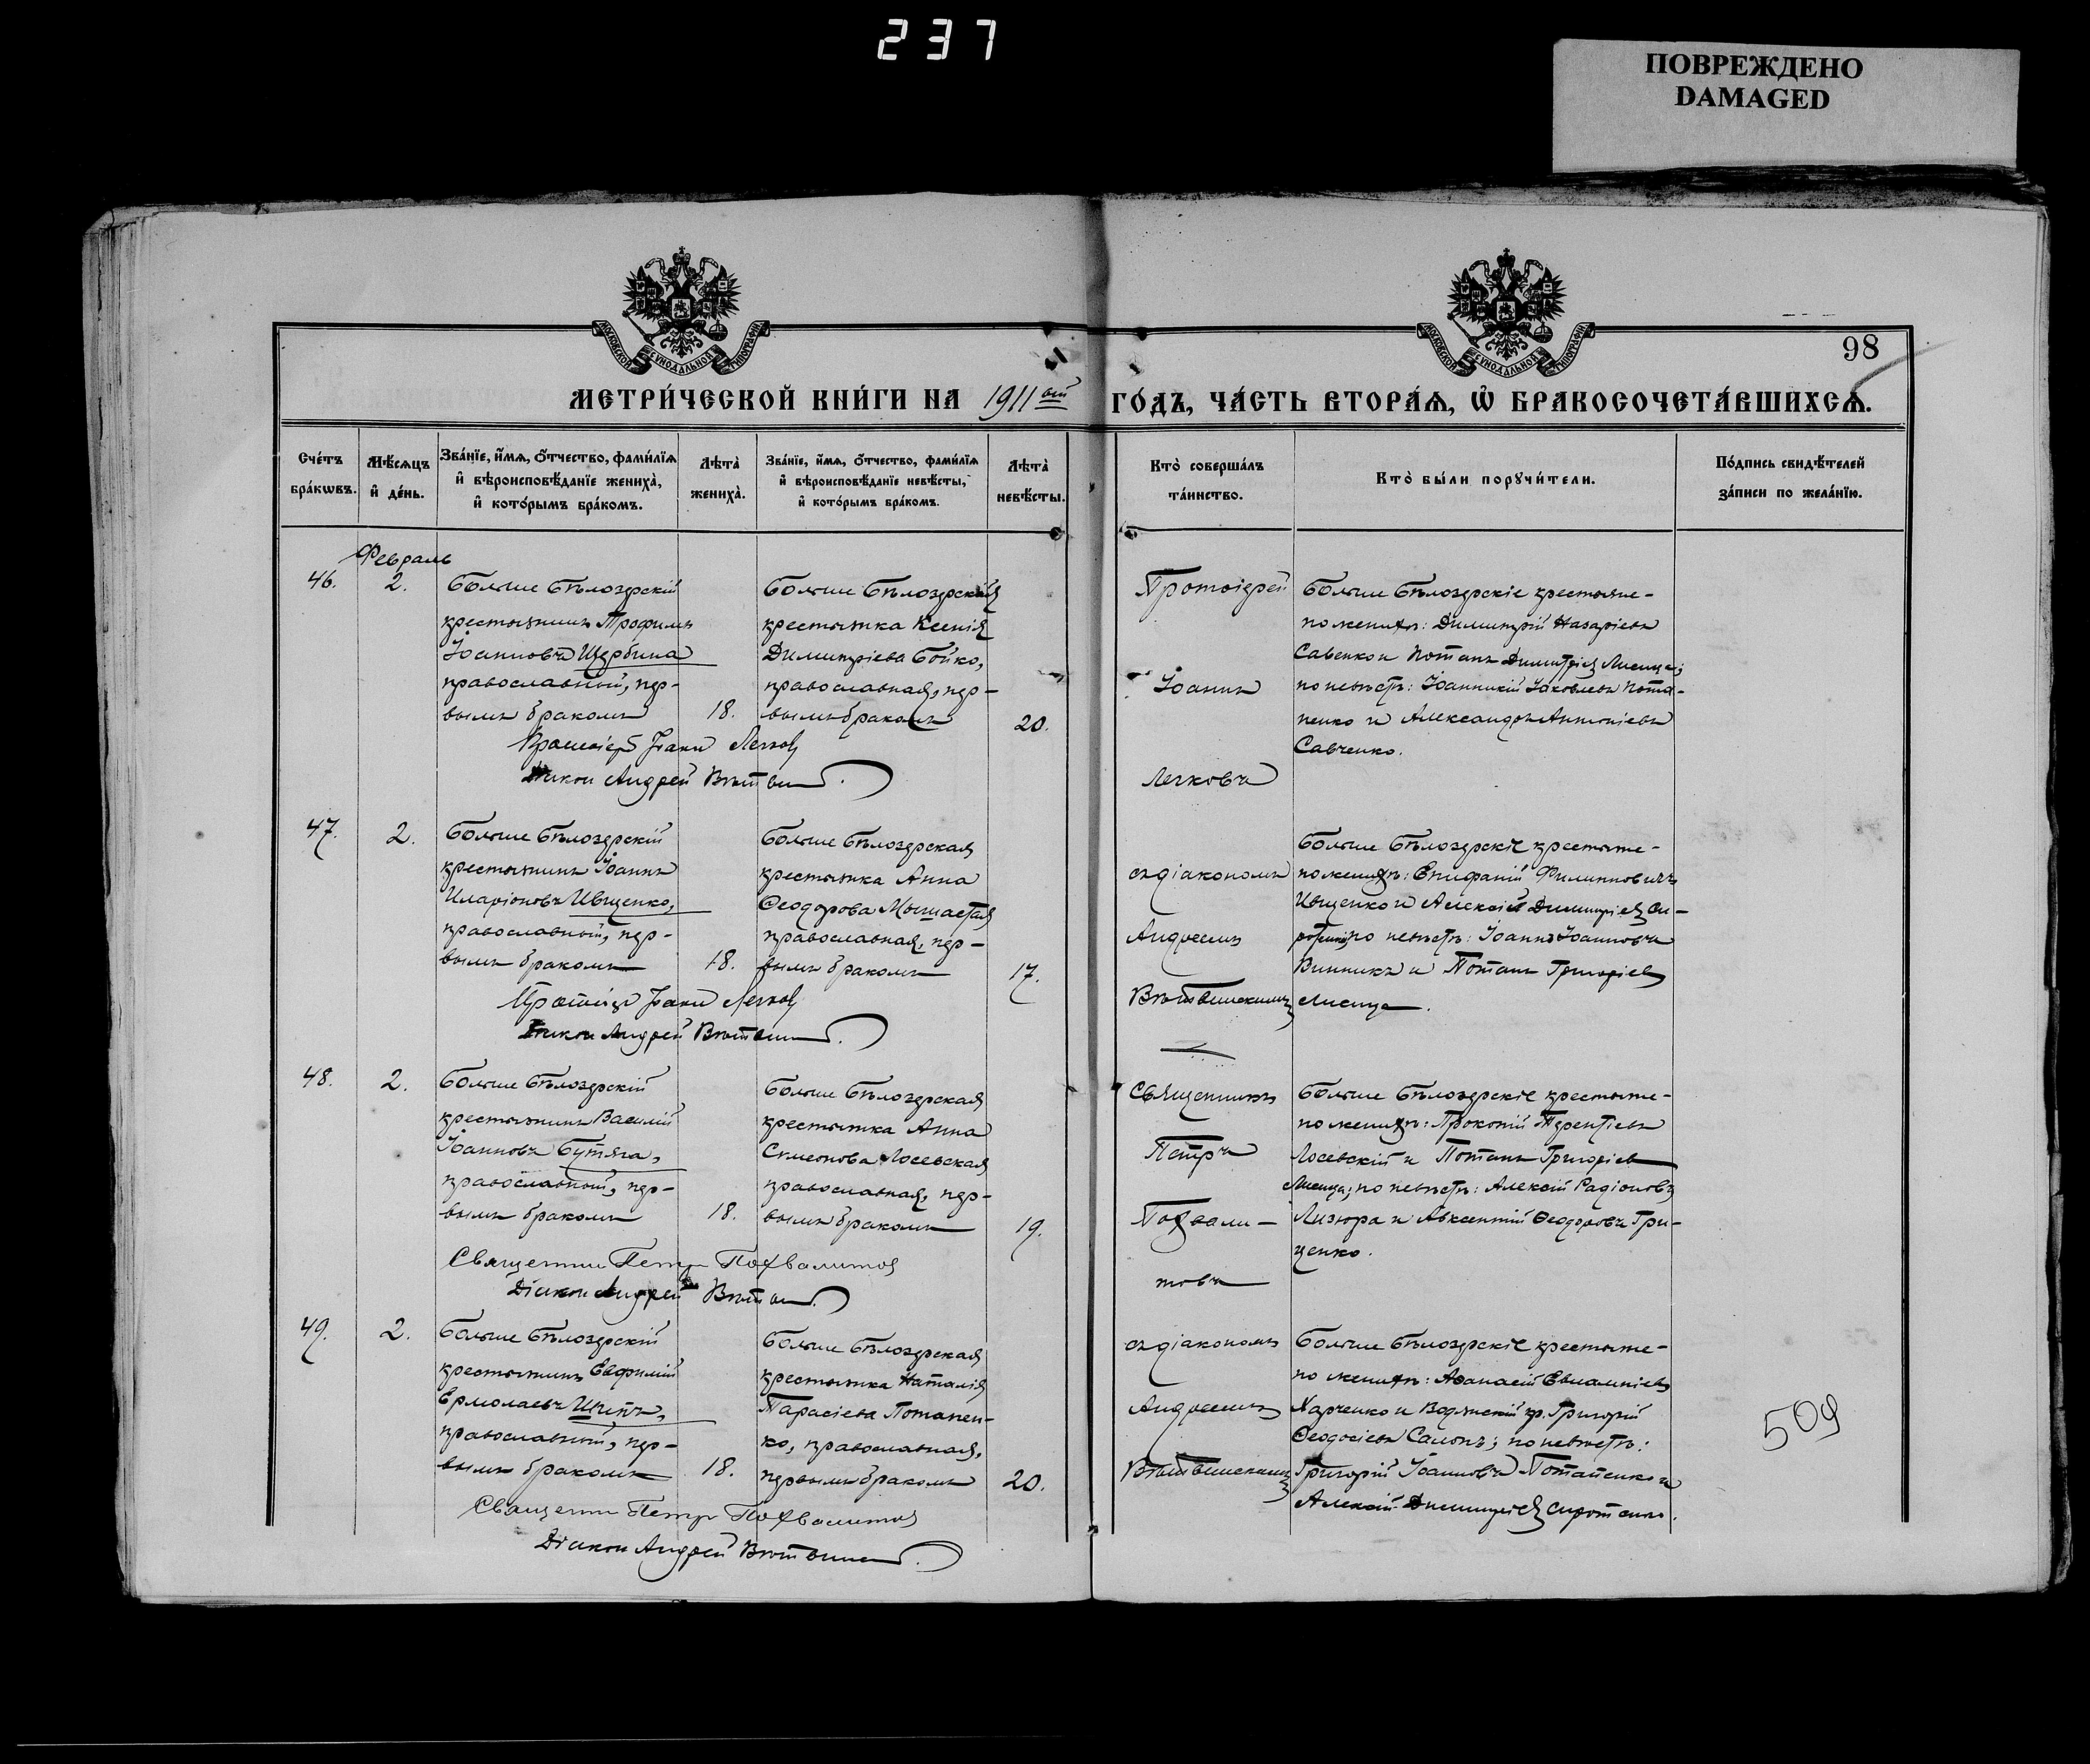 237
ПОВРЕЖДЕНО
DAMAGED
МОСКОВСКОЙ СѴНОДАЛЬНОЙ ТИПОГРАФІИ
МОСКОВСКОЙ СѴНОДАЛЬНОЙ ТИПОГРАФІИ
98
МЕТРИ́ЧЕСКОЙ КНИ́ГИ НА 1911 ый ГО́ДЪ, ЧА́СТЬ ВТОРА́Ѧ, Ѡ҆ БРАКОСОЧЕТА́ВШИХСѦ.
Сче́тъ
бра́кѡвъ.
Мѣ́сѧцъ
и҆ де́нь.
Зва́нїе, и҆́мѧ, ѻ҆́тчество, фами́лїѧ
и҆ вѣроисповѣ́данїе жениха̀,
и҆ кото́рымъ бра́комъ.
Лѣта̀
жениха̀.
Зва́нїе, и҆́мѧ, ѻ҆́тчество, фами́лїѧ
и҆ вѣроисповѣ́данїе невѣ́сты,
и҆ кото́рымъ бра́комъ.
Лѣта̀
невѣ́сты.
Кто̀ соверша́лъ
та́инство.
Кто̀ бы́ли порꙋчи́тели.
По́дпись свидѣ́телей
за́писи по жела́нїю.
Февраль
46.
2.
Больше Бѣлозерскій
крестьянинъ Трофимъ
Іоанновъ Щербина
православный, пер-
вымъ бракомъ
18.
Больше Бѣлозерская
крестьянка Ксенія
Димитріева Бойко,
православная, пер-
вымъ бракомъ
20.
Протоіерей
Іоаннъ
Легковъ
Больше Бѣлозерскіе крестьяне-
по женихѣ: Димитрій Назаріевъ
Савенко и Потапъ Димитріев Лисица;
по невѣстѣ: Іоанникій Іаковлевъ Пота-
пенко и Александръ Антоніевъ
Савченко.
Протоіер Іоанн Легков
Діакон Андрей
47.
2.
Больше Бѣлозерскій
крестьянинъ Іоаннъ
Иларіоновъ Ивщенко,
православный, пер-
вымъ бракомъ
18.
Больше Бѣлозерская
крестьянка Анна
Ѳеодорова Мышастая
православная, пер-
вымъ бракомъ
17.
съ діакономъ
Андреемъ
Больше Бѣлозерскіе крестьяне-
по женихѣ: Епифаній Филипповичъ
Ивщенко и Алексій Димитріев Си-
ротенко по невѣстѣ: Іоаннъ Іоанновъ
Винникъ и Потапъ Григоріев
Лисица.
Протоіер Іоанн Легков
Діакон Андрей
48.
2.
Больше Бѣлозерскій
крестьянинъ Василій
Іоанновъ Бутяга,
православный, пер-
вымъ бракомъ
18.
Больше Бѣлозерская
крестьянка Анна
Симеонова Лосевская
православная, пер-
вымъ бракомъ
19.
Священникъ
Петръ
Похвали-
товъ
Больше Бѣлозерскіе крестьяне-
по женихѣ: Прокопій Терентіевъ
Лосевскій и Потапъ Григоріев
Лисица; по невѣстѣ: Алексій Радіоновъ
Лизюра и Авксентій Ѳеодоровъ Гри-
ценко.
Священник Петр Похвалитов
Діакон Андрей
49.
2.
Больше Бѣлозерскій
крестьянинъ Евфимій
Ермолаевъ
православный, пер-
вымъ бракомъ
18.
Больше Бѣлозерская
крестьянка Наталія
Тарасіева Потапен-
ко, православная,
первымъ бракомъ
20.
съ діакономъ
Андреемъ
Больше Бѣлозерскіе крестьяне-
по женихѣ: Аѳанасій Евлампіев
Харченко и Водянскій кр. Григорій
Ѳеодосіевъ; по невѣстѣ:
Григорій Іоанновъ Потапенко и
Алексій Димитріев Сиротенко.
509
Священник Петр Похвалитов
Діакон Андрей